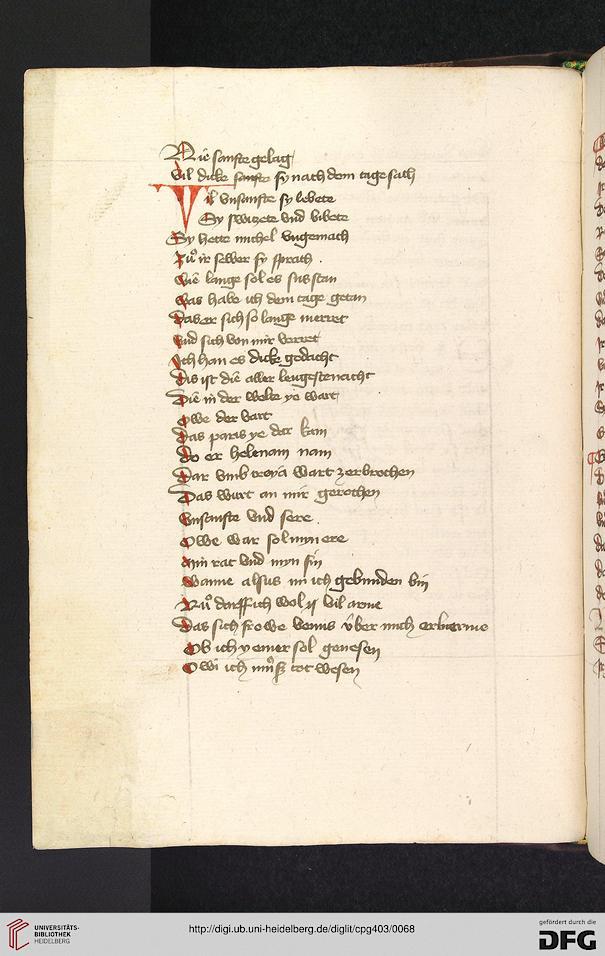 Nie sanfte gelag
Vil dicke sanfte sy nach dem tage sach
Vil vnsanfte sy lebete
Sy swizete vnd bibete
Sy hette michel vngemach
Zuͦ ir selber sy sprach .
Wie lange sol es sus stan
Was habe ich dem tage getan
Das er sich so lange merret
Vnd sich von mir verret
Ich han es dicke gedacht
Dis ist die aller lengeste nacht
Die in der welte ye wart
Owe der vart
Das paris ye dar kam
Do er helenam nam
Dar vmb troya wart zerbrochen
Das wart an mir gerochen
Vnsanfte vnd sere .
Owe war sol myn ere
Min rat vnd myn sin
Wanne alsus in ich gebunden bin
Nuͦ darff ich wol vil arme
Das sich frowe venus v̂ber mich erbarme
Ob ich yemer sol genesen
Owi ich muͦß tot wesen
UNIVERSITÄTS-
BIBLIOTHEK
HEIDELBERG
http://digi.ub.uni-heidelberg.de/diglit/cpg403/0068
gefördert durch die
DFG